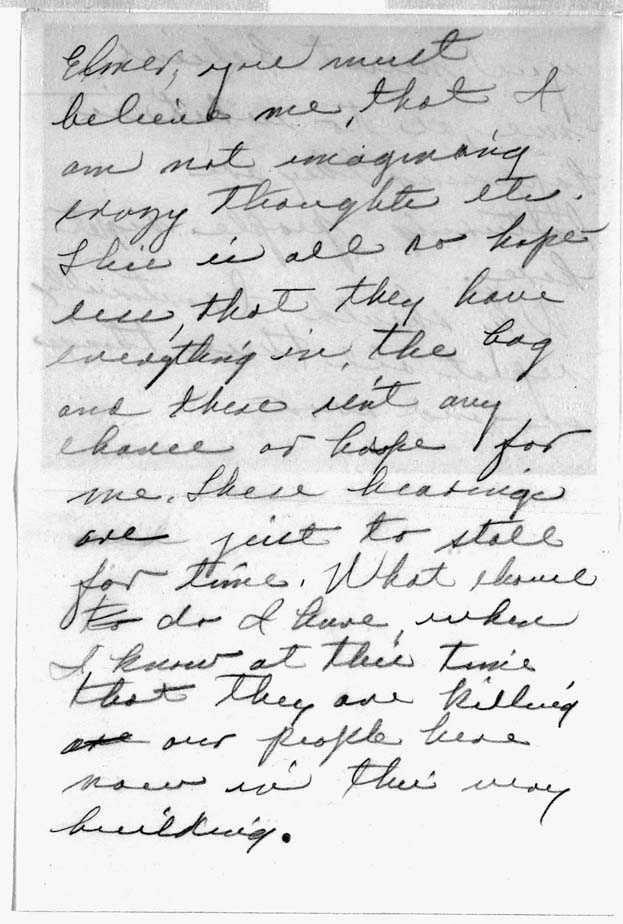 Elmer, you must
believe me, that I
am not imagining
crazy thoughts etc.
This is all so hope
less, that they have
everything in the bag
and there isn't any
chance or hope for
me. These hearings
are just to stall
for time. What chance
to do I have, when
I know at this time
that they are killing
are our people here
now in this very
building.